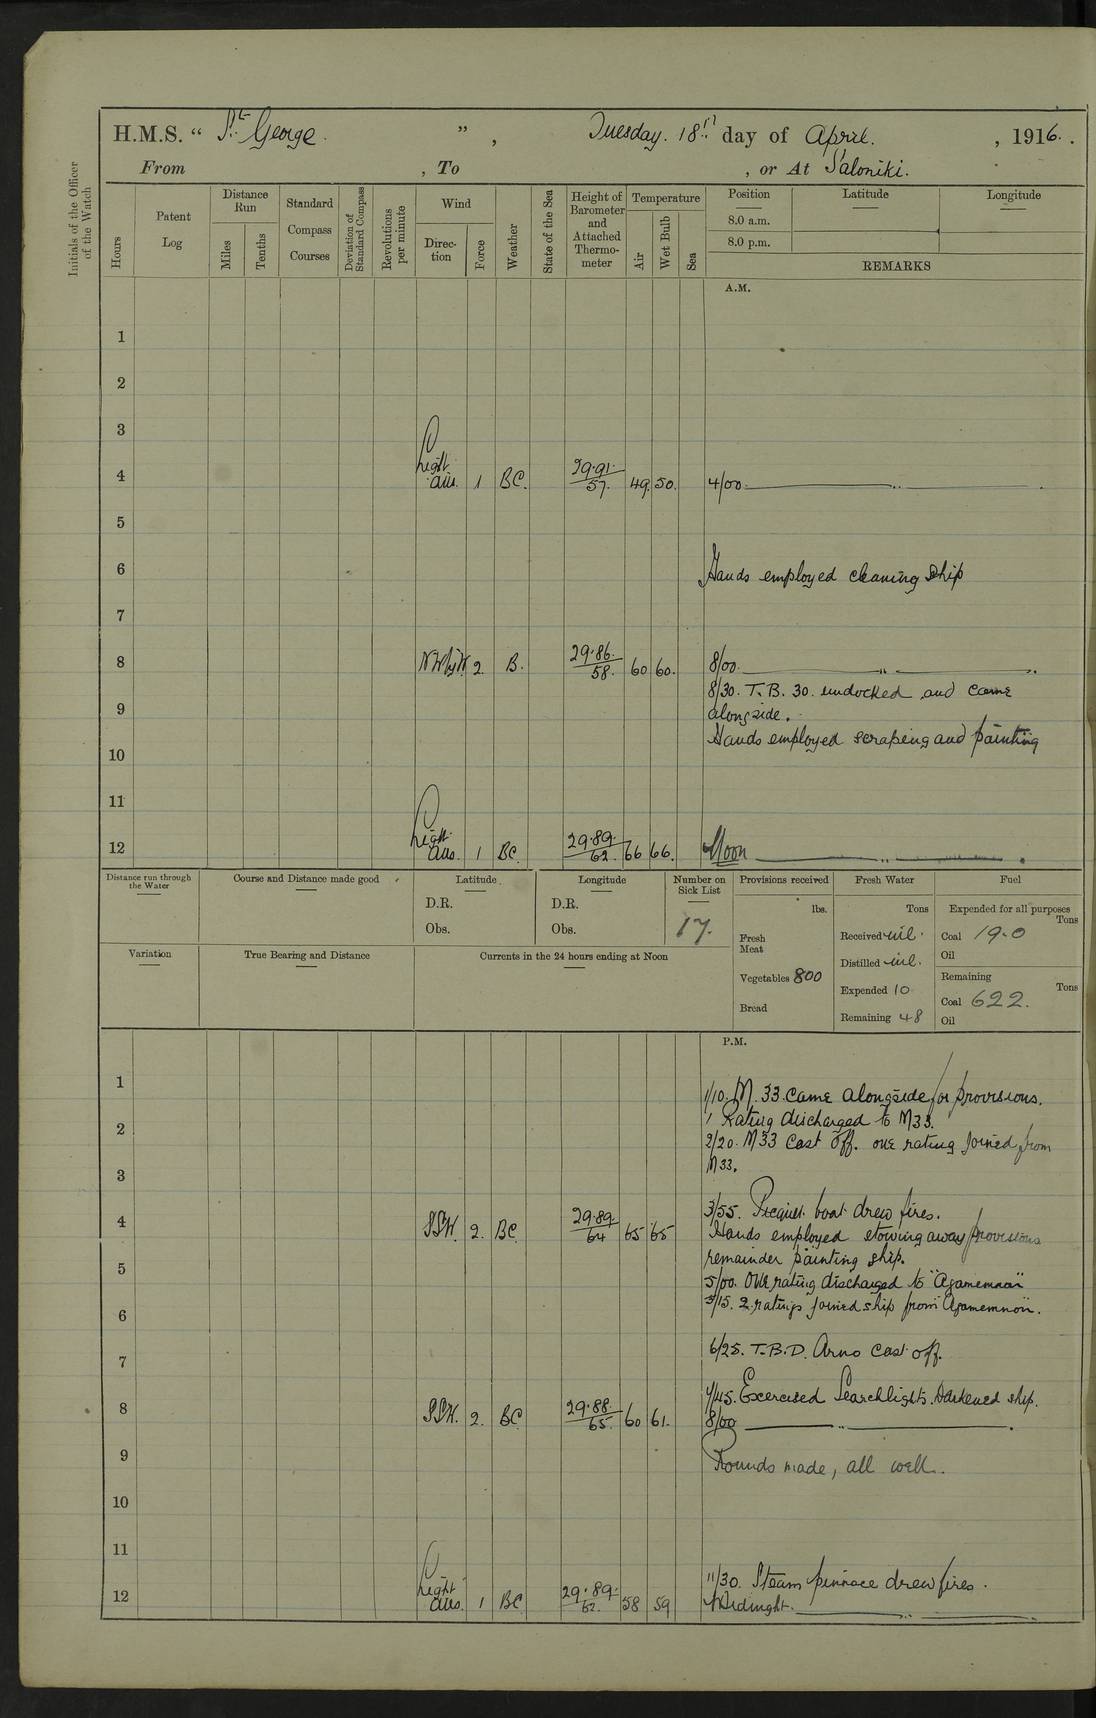 H.M.S. “ St. George. ”, Tuesday. 18th day of April. , 1916. .
From , To , or At Saloniki.
Initials of the Officer of the Watch
Hours
Patent Log
Distance Run
Miles
Tenths
Standard Compass Courses
Deviation of Standard Compass
Revolutions per minute
Wind
Direc-tion
Force
Weather
State of the Sea
Height of Barometer and Attached Thermo-meter
Temperature
Air
Wet Bulb
Sea
Position Latitude Longitude
8.0 a.m.
8.0 p.m.
REMARKS
A.M.
1
2
3
4 Light airs. 1 BC. 29.91. 57. 49. 50. 4/00.
5
6 Hands employed cleaning ship
7
8 NWbyW 2. B. 29.86. 58. 60 60. 8/00.
8/30. T.B. 30. undocked and came
9 alongside.
Hands employed scraping and painting
10
11
12 Light airs. 1 BC. 29.89. 62. 66 66. Noon
Distance run through the Water
Course and Distance made good
Latitude
D.R.
Obs.
Longitude
D.R.
Obs.
Number on Sick List
17.
Provisions received
lbs.
Fresh Meat
Vegetables 800
Bread
Fresh Water
Tons
Received nil.
Distilled nil.
Expended 10
Remaining 48
Fuel
Expended for all purposes
Tons
Coal 19.0
Oil
Remaining
Tons
Coal 622.
Oil
Variation
True Bearing and Distance
Currents in the 24 hours ending at Noon
P.M.
1 1/10. M. 33. came alongside for provisions.
1 Rating discharged to M33.
2 2/20. M33 cast off. one rating joined from
3 M33.
3/55. Picquet boat drew fires.
4 SSW. 2. BC. 29.89. 64 65 65 Hands employed stowing away provisions
remainder painting ship.
5 5/00. One rating discharged to "Agamemnon"
5/15. 2. ratings joined ship from "Agamemnon".
6
6/25. T.B.D. Arno cast off.
7
7/45. Exercised Searchlights. Darkened ship.
8 SSW. 2. BC 29.88. 65. 60 61. 8/00
9 Rounds made, all well.
10
11
11/30. Steam pinnace drew fires.
12 Light airs. 1 BC 29.89. 62. 58 59 Midnight.